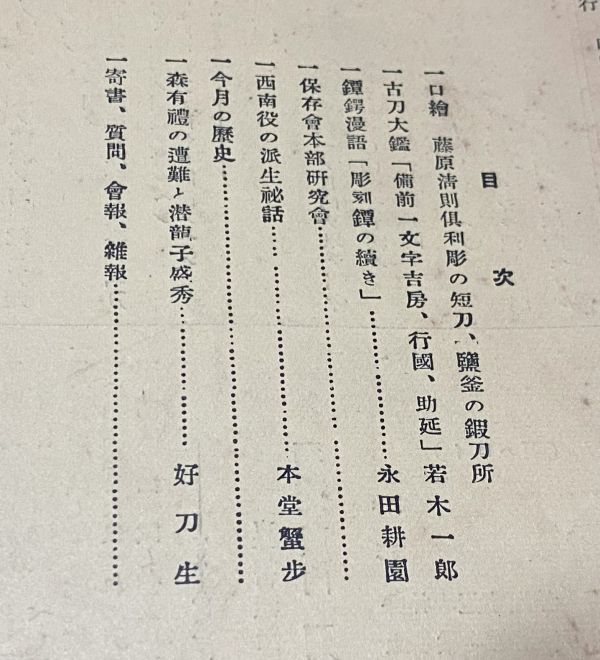 目次
一口繪 藤原淸則倶利彫の短刀、鹽釜の鍛刀所
一古刀大鑑「備前一文字吉房、行國、助延」若木一郎
一鐔鍔漫語「彫刻鐔の續き」……………永田耕園
一保存會本部研究會……………
一西南役の派生祕話……………本堂蟹步
一今月の歷史……………
一森有禮の遭難と潜龍子盛秀……………好刀生
一寄書、質問、會報、雜報……………
行